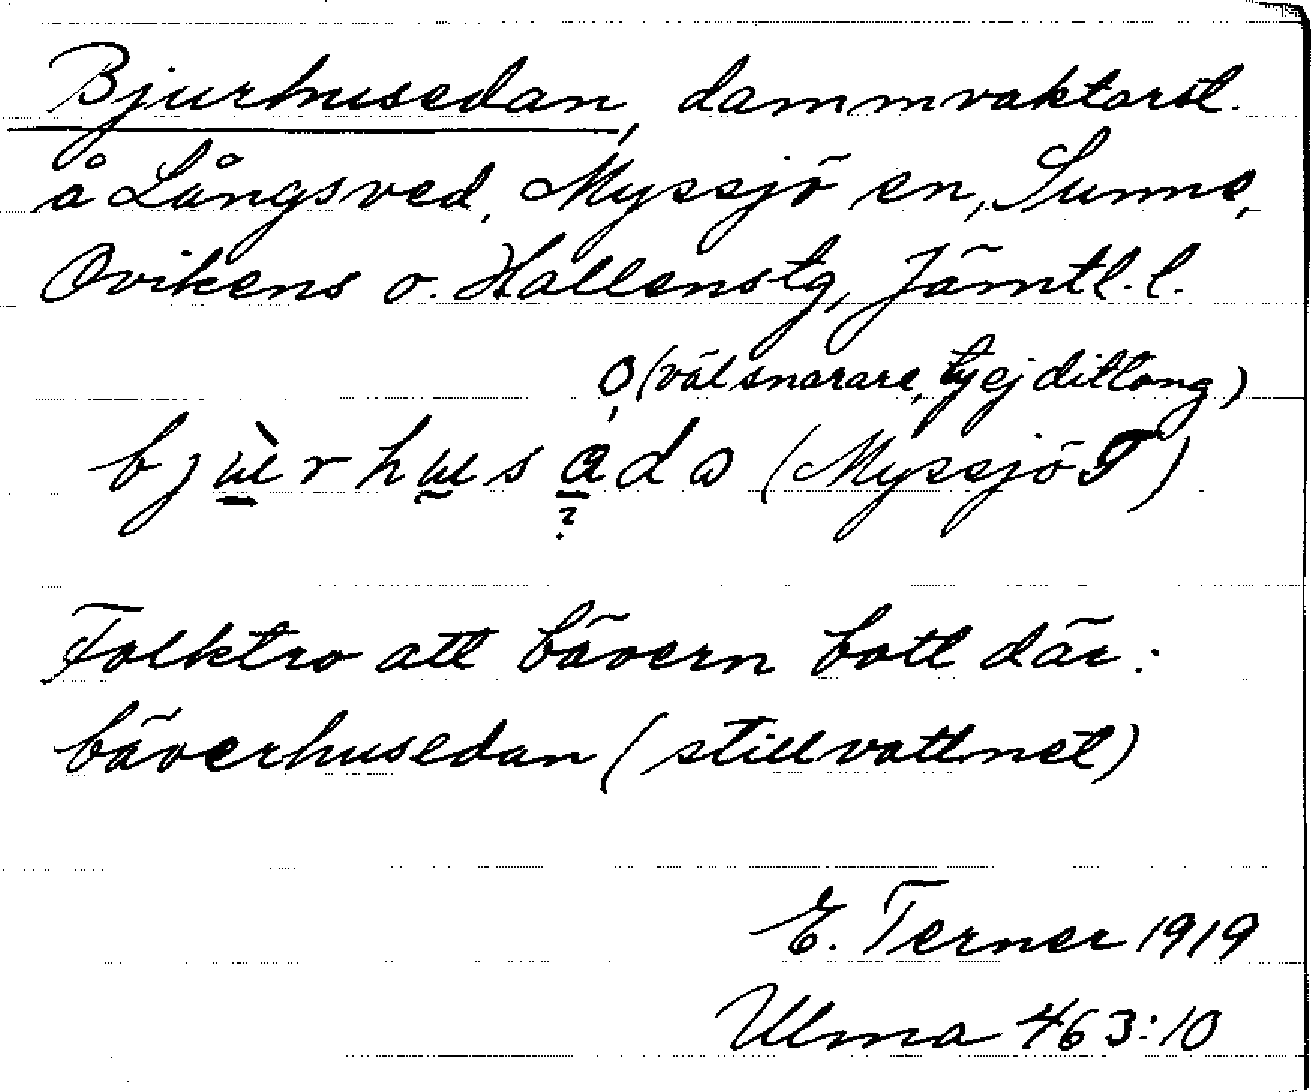 Bjurhusedan, dammvaktarst.
å Långsved, Myssjö sn, Sunne,
Ovikens o. Hallenstg, Jämtl. l.
(väl snarare, ty ej diftong)
(Myssjö T)
Folktro att bävern bott där:
bäverhusedan (stillvattnet)
E. Terner 1919
Ulma 463:10